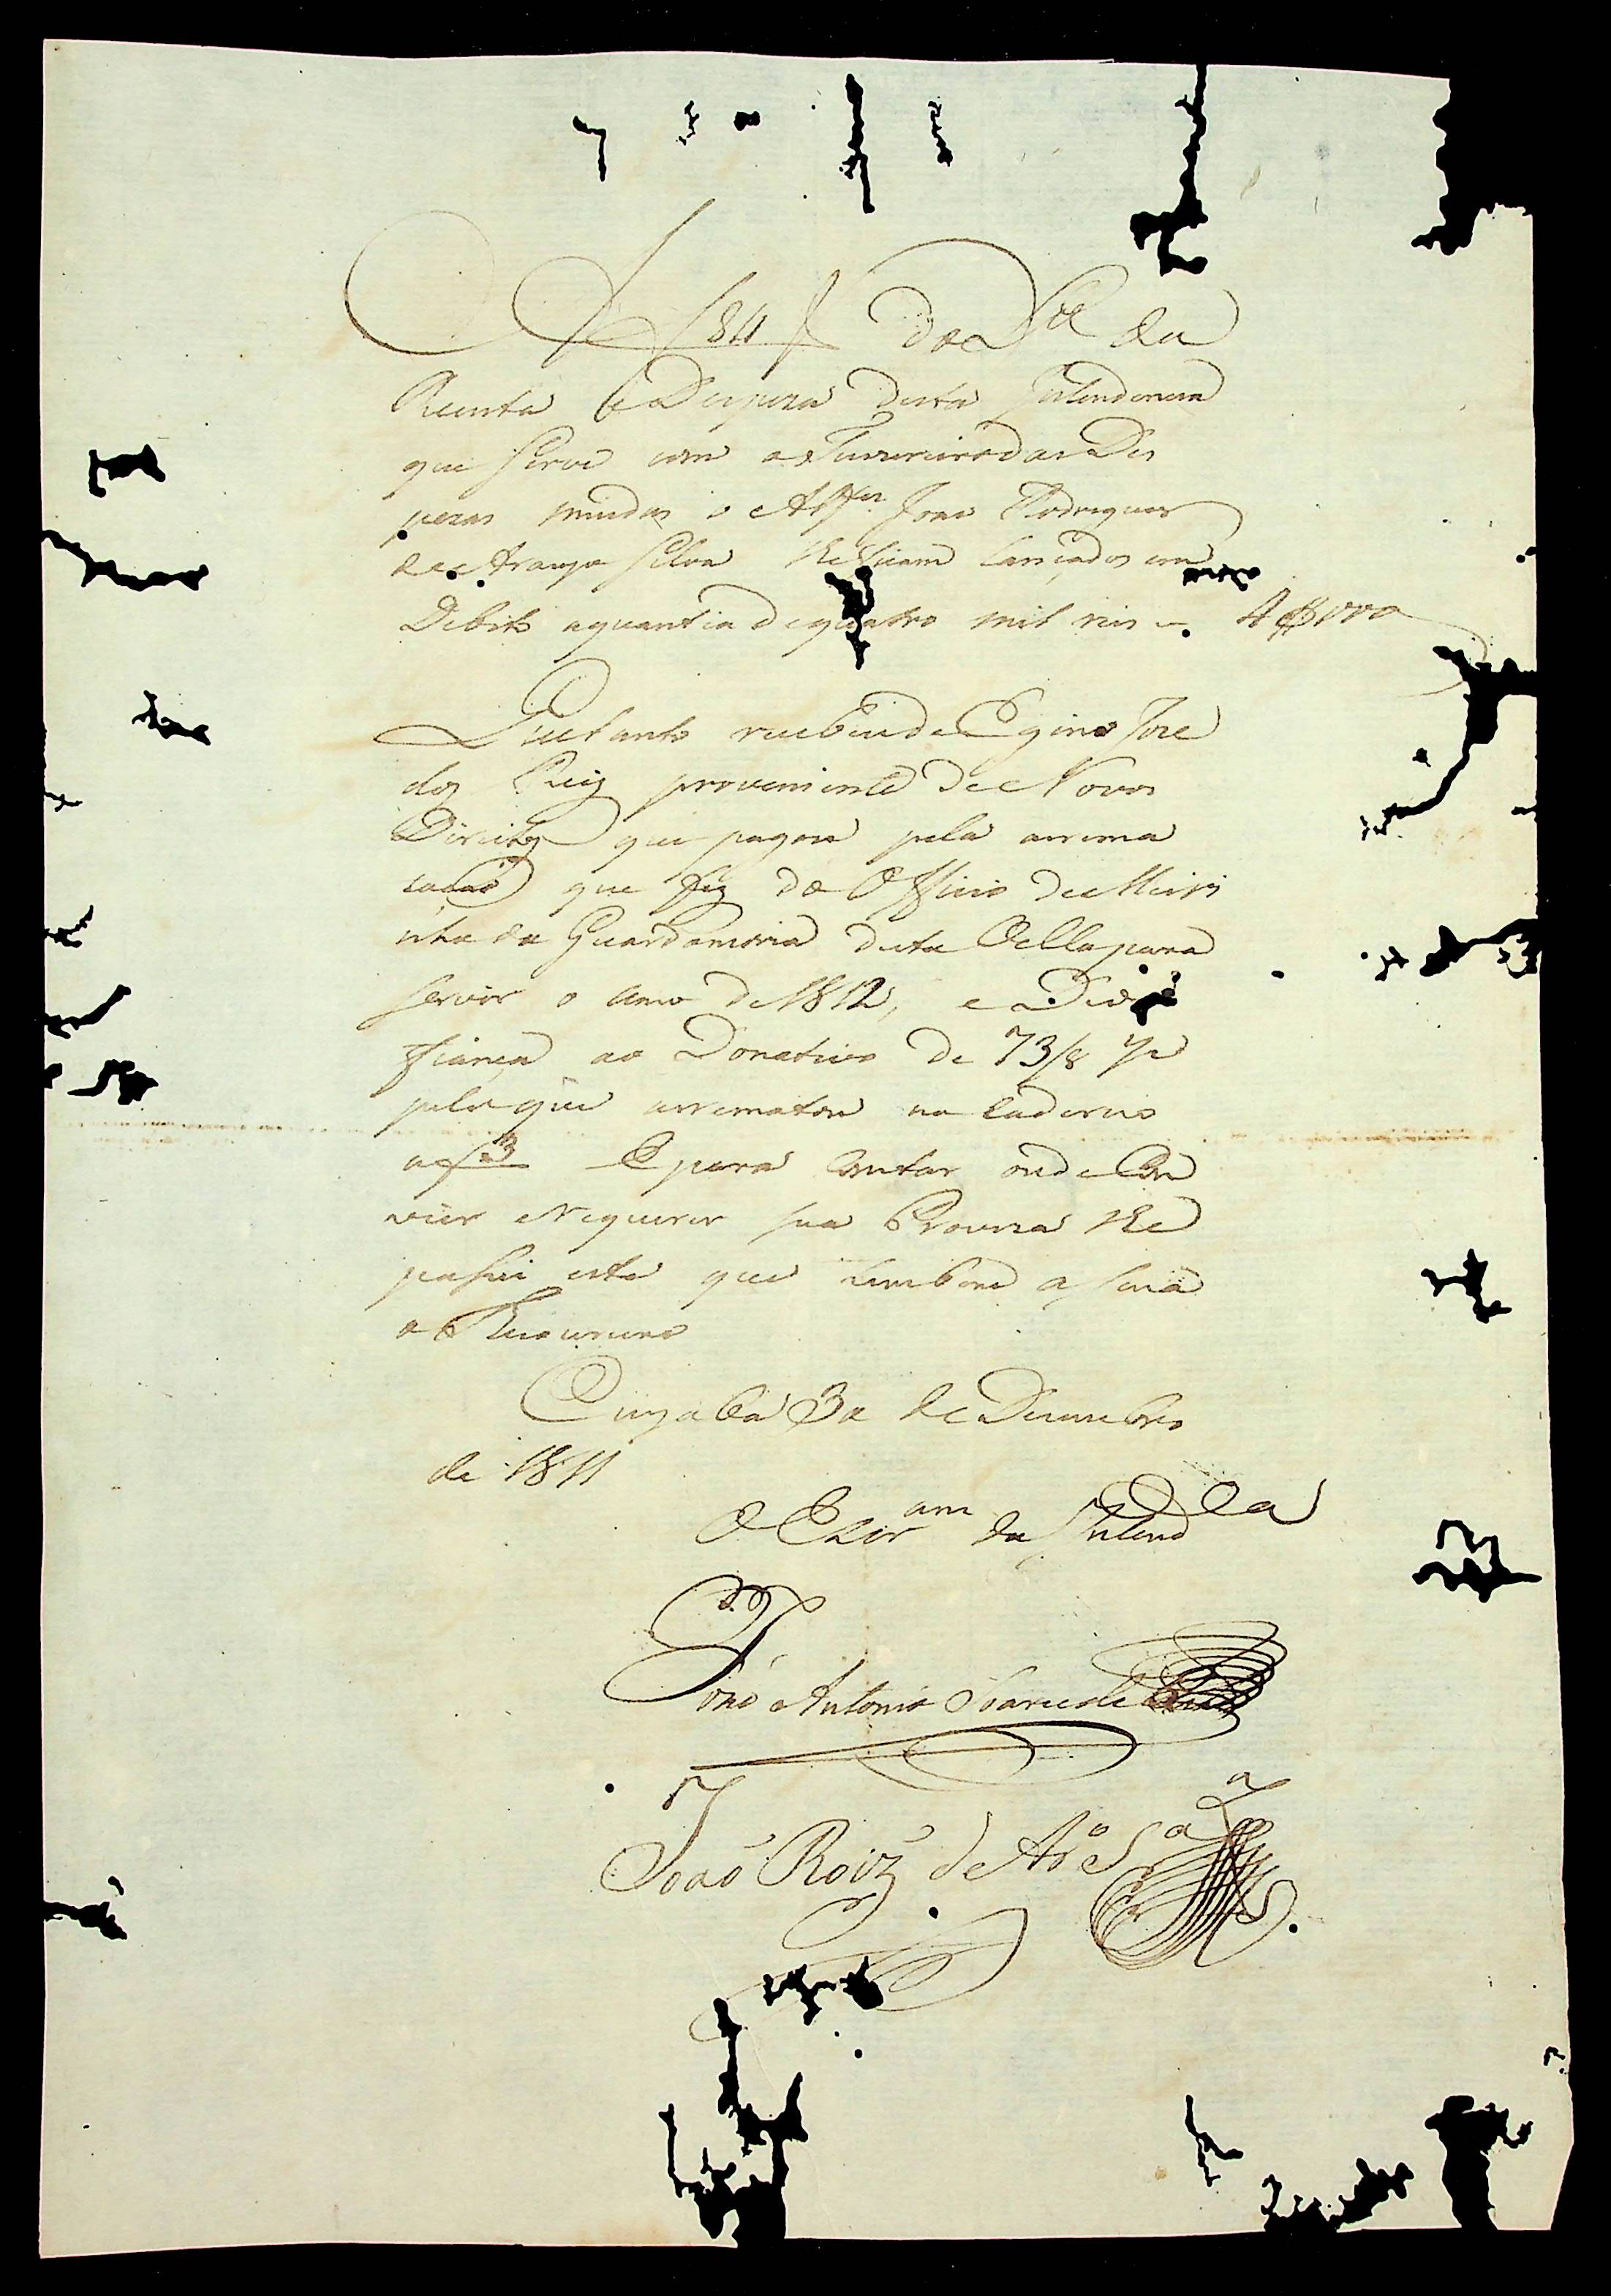 A f 84 V do L.o da
Receita e Despeza desta Intendencia
que serve com o Thezoureiro das Des
pezas miudas o Alferes João Rodrigues
de Araujo Silva lhe ficam lançados em
Debito a quantia de quatro mil reis = 4$000
Que tanto recebeu de Egino Jose
dos Reis proveniente de Novos
Direitos que pagou pela arrema
tacaõ que fez do Officio de Meiri
nho da Guardamoria desta Villa para
servir o anno de 1812, e deu
fiança ao Donativo de 73/8
pelo que arrematou no Caderno
a f 3 E para constar onde Con
vier e Requerer sua Provizaõ lhe
passei este que tambem assina
o Thezoureiro
Cuyabá 30 de Dezembro
de 1811
O Escr.am da Intend.ca
João Antonio Soares de
João Roiz de Ar.o S.a